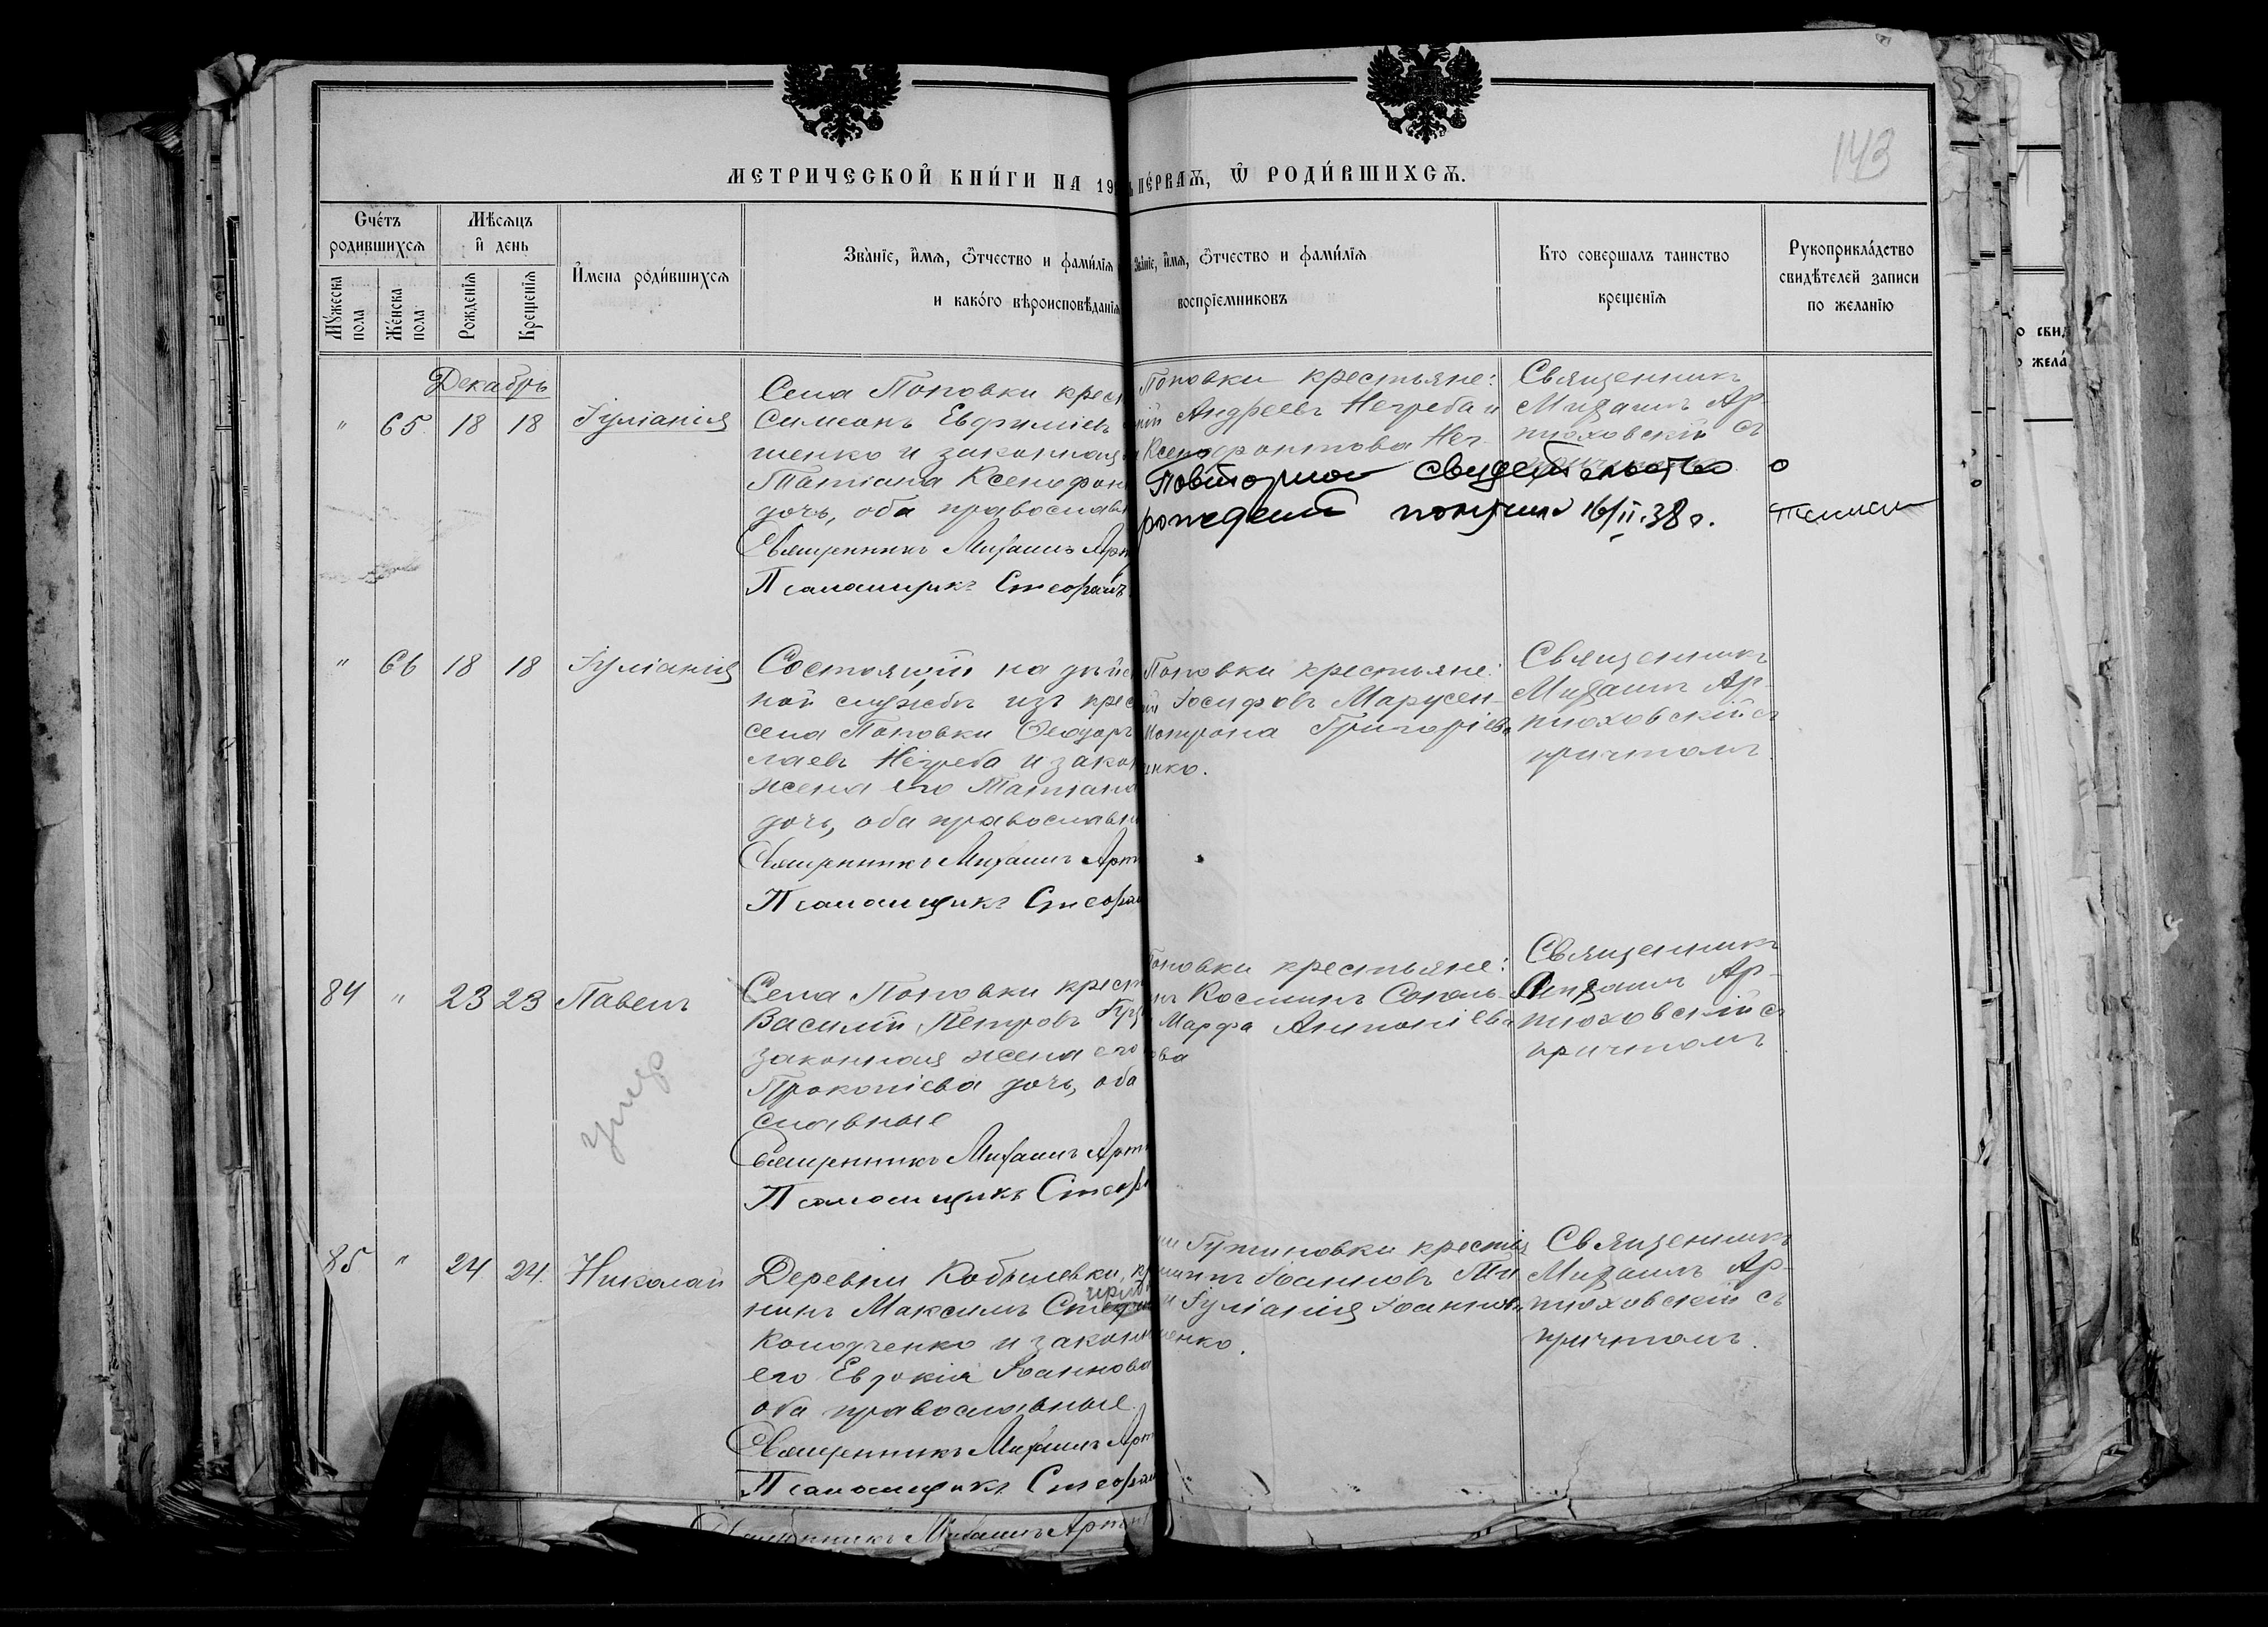 143
МЕТРИЧЕСКОЙ КНИ́ГИ НА 19
ПЕ́РВАѦ, Ѿ РОДИ́ВШИХСѦ.
Сче́тъ родившихсѧ
Мѣсѧцъ и день
Мꙋ́жеска пола
Же́нска пола
Рожденїѧ
Крещенїѧ
Имена роди́вшихсѧ
Зва́нїе, и́мѧ, ѻ́тчество и фами́лїѧ
и како́го вѣроисповѣданїѧ
Зва́нїе, и́мѧ, ѻ́тчество и фами́лїѧ
воспрїемниковъ
Кто совершалъ таинство
крещенїѧ
Рукоприкла́дство
свидѣтелей записи
по желанїю
Декабрь
" 65 18 18 Іуліанія
Села Поповки крест
Симеонъ Евфиміевъ
шенко и законная
Татіана Ксенофон
дочь, оба православн
Священникъ Михаилъ Арт
Псаломщикъ Стефанъ
Поповки крестьяне:
Андреевъ Негреба и
Ксенофонтова Нег-
Священникъ
Михаилъ Ар-
тюховскій съ
Повторное свидетельство о
рождений получил 16/II.38 г.
" 66 18 18 Іуліанія
Состоящій на дѣйс
ной службѣ изъ крес
села Поповки Ѳеодоръ
лаевъ Негреба и закон
жена его Татіана
дочь, оба православн
Священникъ Михаилъ Арт
Псаломщикъ Стефан
Поповки крестьяне:
Іосифовъ Марусен-
Мотрона Григоріева
енко.
Священникъ
Михаилъ Ар-
тюховскій съ
причтомъ.
84 " 23 23 Павелъ
умер
Села Поповки крест
Василій Петровъ
законная жена его
Прокопіева дочь, оба
славные
Священникъ Михаилъ Арт
Псаломщикъ Стеф
Поповки крестьяне:
Косминъ Соколь-
Марфа Антоніева
ова
Священникъ
Михаилъ Ар-
тюховскій съ
причтомъ.
85 " 24 24 Николай
Деревни Кобылевки, кр
нинъ Максимъ
Колодченко и законн
его Евдокія Іоаннова
оба православные.
Священникъ Михаилъ Арт
Псаломщикъ Стефан
крестья
Іоанновъ
Іуліанія Іоаннов
енко.
Священникъ
Михаилъ Ар-
тюховскій съ
причтомъ.
Священникъ Михаилъ Артю